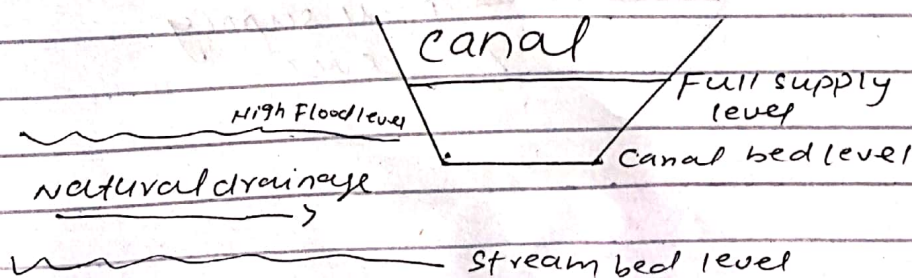 Canal
Full supply
level
High Flood level
Canal bed level
Natural drainage
Stream bed level